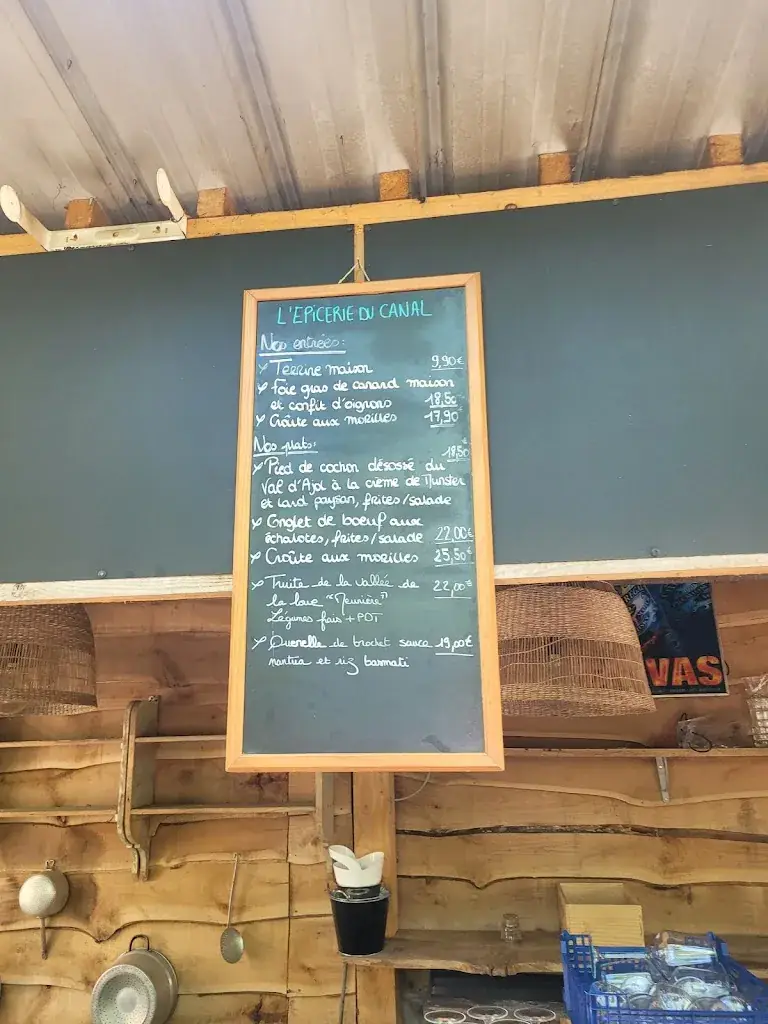 L'EPICERIE DU CANAL
Nos entrées:
Terrine maison 9,90€
Foie gras de canard maison
et confit d'oignons 18,50
Croûte aux morilles 17,90
Nos plats: 18,50
Pied de cochon désossé du
Val d'Ajol à la crème de Munster
et lard paysan, frites/salade
Onglet de boeuf aux
échalotes, frites/salade 22,00€
Croûte aux morilles 25,50€
Truite de la vallée de 22,00€
la loue "Meunière"
Légumes frais + PDT
Quenelle de brochet sauce 19,00€
nantua et riz basmati
VAS